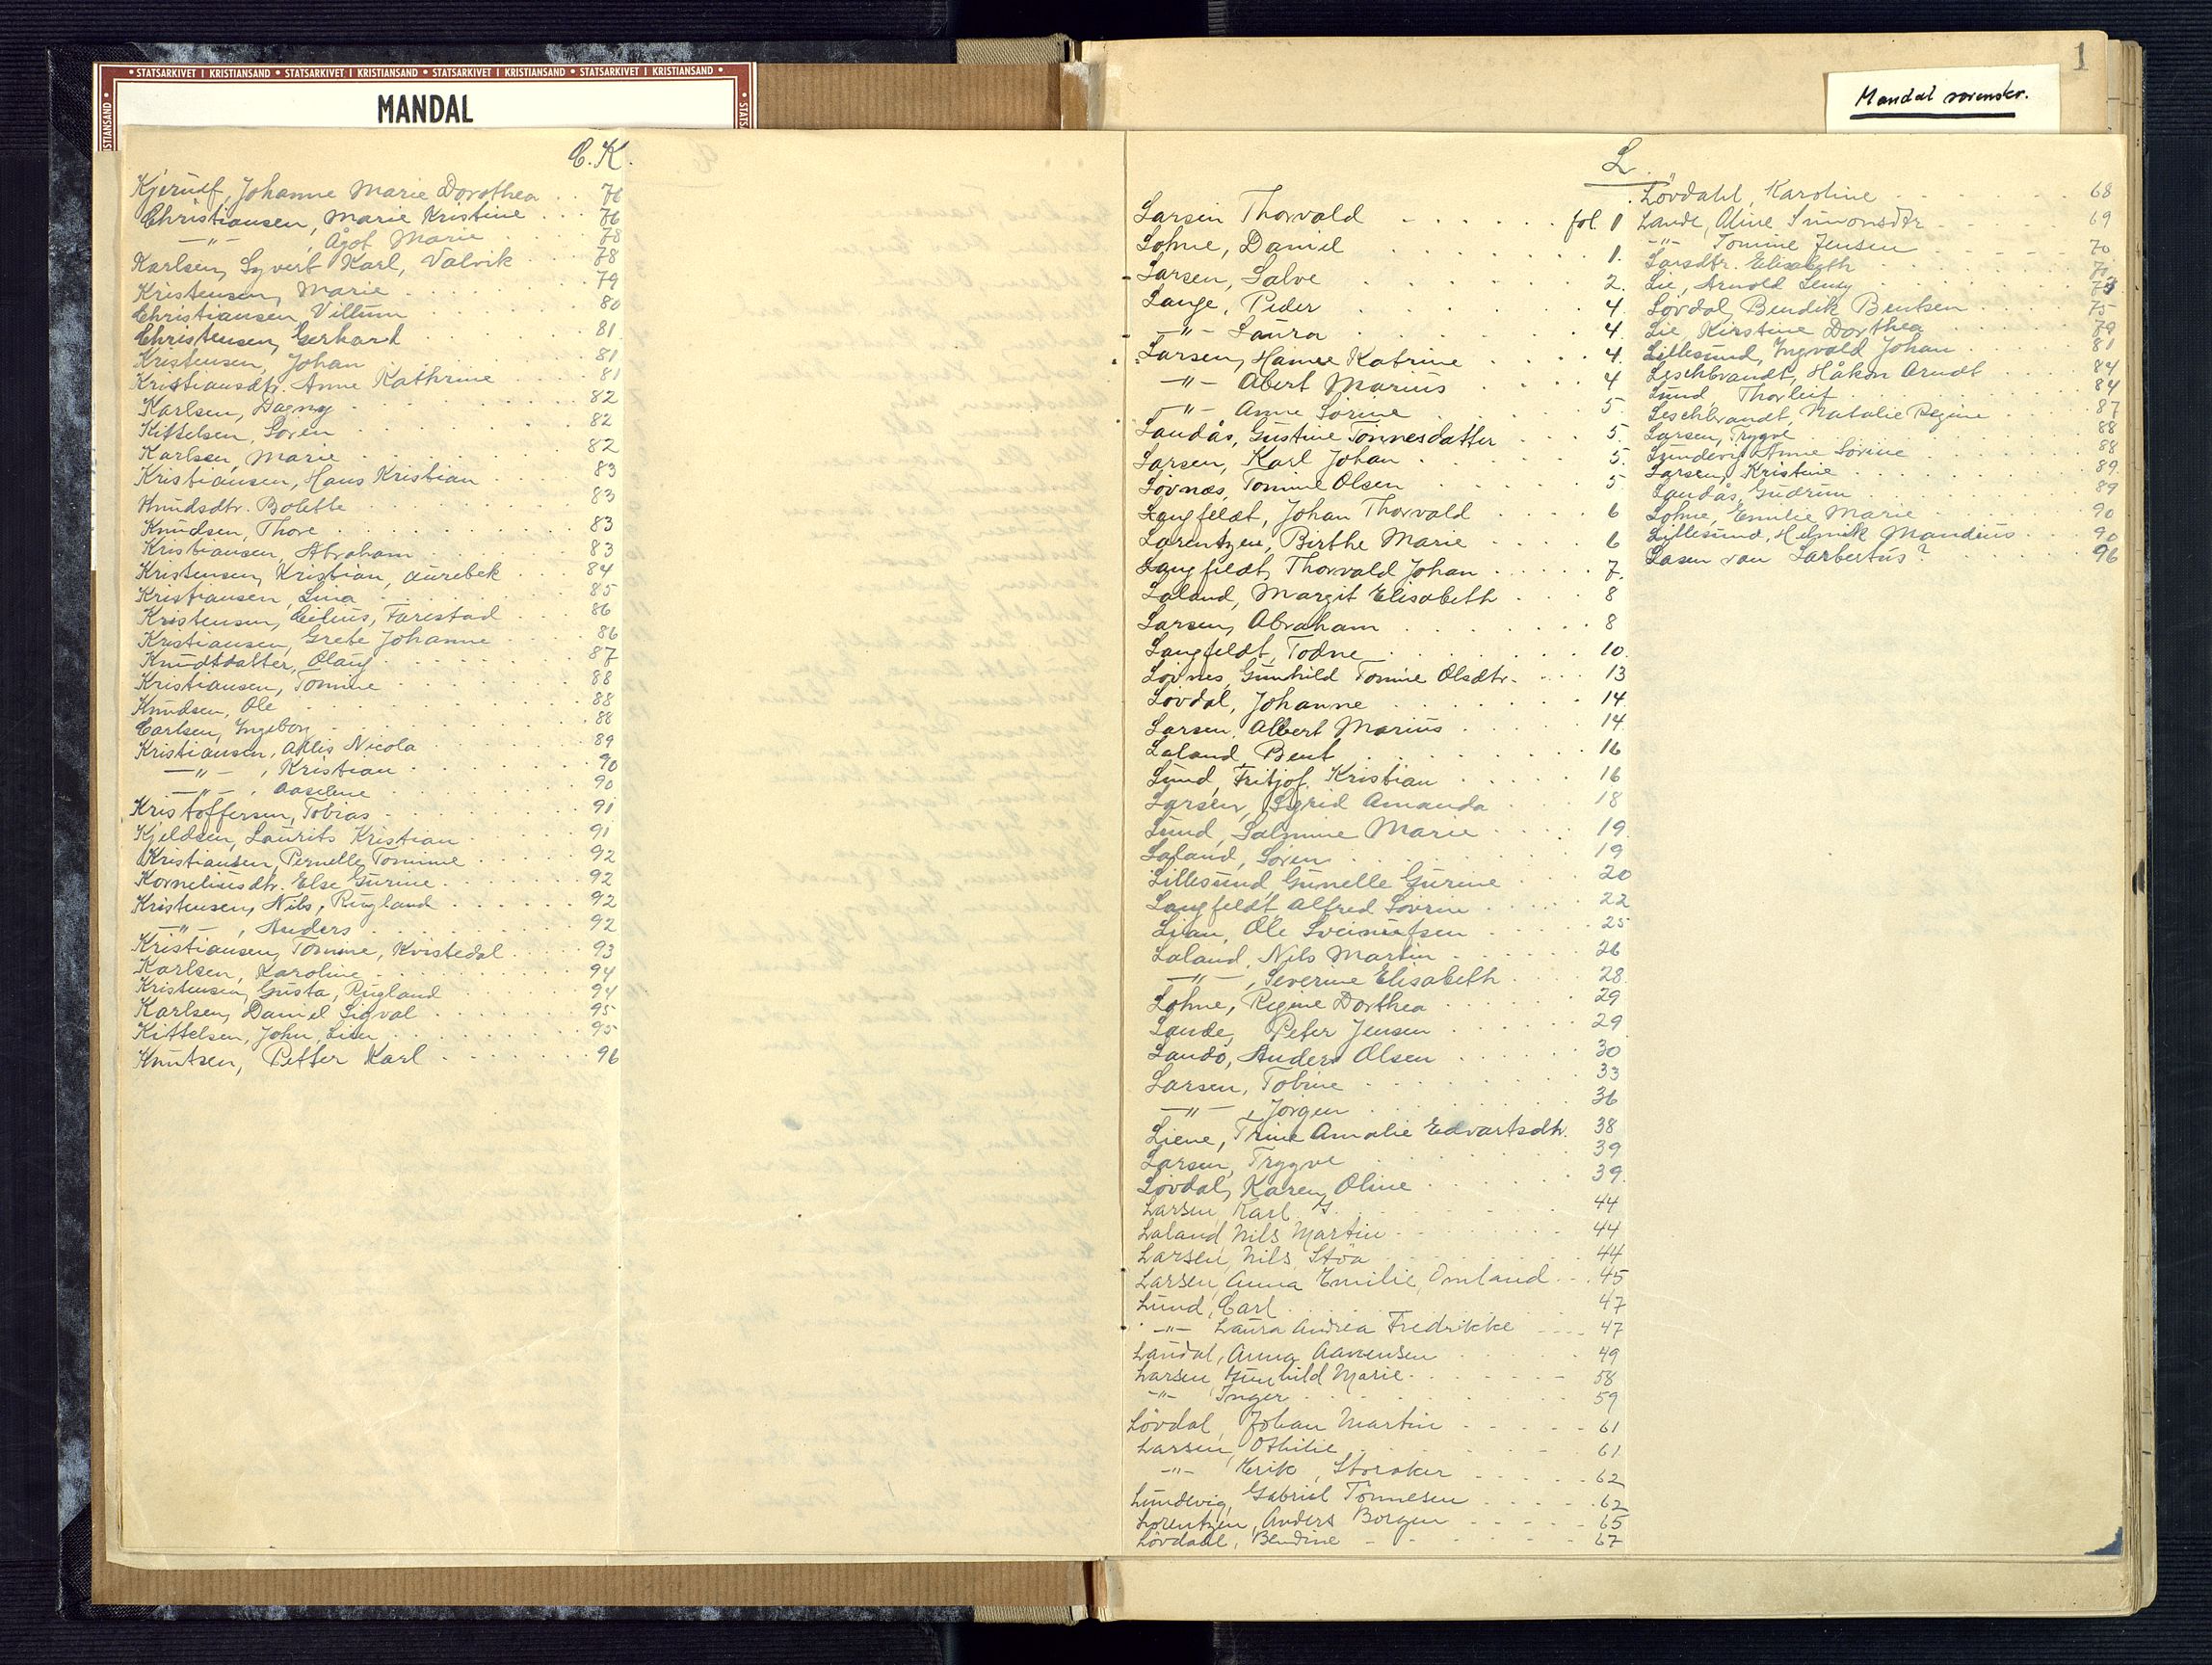 • STATSARKIVET I KRISTIANSAND • STATSARKIVET I KRISTIANSAND • STATSARKIVET I KRISTIANSAND • STATSARKIVET I KRISTIANSAND •
MANDAL
C. K.
Kjerulf, Johanne Marie Dorothea . . 76
Christiansen, Marie Kristine . . . 76
—"— , Ågot Marie . . . 78
Karlsen, Syvert Karl, Valvik . . . 78
Kristensen, Marie . . . 79
Christiansen, Villum . . . 80
Christensen, Gerhard . . . 81
Kristensen, Johan . . . 81
Kristiansdtr. Anne Kathrine . . . 81
Karlsen, Dagny . . . 82
Kittelsen, Søren . . . 82
Karlsen, Marie . . . 82
Kristiansen, Hans Kristian . . . 83
Knudsdtr. Bolette . . . 83
Knudsen, Thore . . . 83
Kristiansen, Abraham . . . 83
Kristensen, Kristian, Aurebek . . . 84
Kristiansen, Lina . . . 85
Kristensen, Cilius, Farestad . . . 86
Kristiansen, Grete Johanne . . . 86
Knudtdatter, Olaug . . . 87
Kristiansen, Tomine . . . 88
Knudsen, Ole . . . 88
Carlsen, Ingeborg . . . 88
Kristiansen, Atlis Nicola . . . 89
—"— , Kristian . . . 90
—"— , Aaselene . . . 90
Kristoffersen, Tobias . . . 91
Kjeldsen, Laurits Kristian . . . 91
Kristiansen, Pernelle Tomine . . . 92
Korneliusdtr. Else Gurine . . . 92
Kristensen, Nils, Rugland . . . 92
—"— , Anders . . . 92
Kristiansen, Tomine, Kvistedal . . . 93
Karlsen, Karoline . . . 94
Kristensen, Gusta, Rugland . . . 94
Karlsen, Daniel Sigval . . . 95
Kittelsen, John, Lien . . . 95
Knutsen, Petter Karl . . . 96
1
Mandal sorenskr.
L.
Larsen Thorvald . . . fol 1
Lohne, Daniel . . . 1.
Larsen, Salve . . . 2.
Lange, Peder . . . 4.
—"— Laura . . . 4.
Larsen, Hanne Katrine . . . 4.
—"— Abert Marius . . . 4
—"— Anne Sorine . . . 5.
Landås, Gustine Tønnesdatter . . . 5.
Larsen, Karl Johan . . . 5.
Løvnæs, Tomine Olsen . . . 5
Langfeldt, Johan Thorvald . . . 6
Larentzen, Birthe Marie . . . 6
Langfeldt, Thorvald Johan . . . 7.
Laland, Margit Elisabeth . . . 8
Larsen, Abraham . . . 8
Langfeldt, Todne . . . 10.
Løvnes, Gunhild Tomine Olsdtr. . . . 13
Løvdal, Johanne . . . 14.
Larsen, Albert Marius . . . 14.
Laland, Bent . . . 16
Lund, Fritjof Kristian . . . 16
Larsen, Sigrid Amanda . . . 18
Lund, Salmine Marie . . . 19.
Laland, Søren . . . 19
Lillesund, Gunelle Gurine . . . 20
Langfeldt Alfred Søvrin . . . 22
Lian, Ole Sveinulfsen . . . 25
Laland, Nils Martin . . . 26
—"— , Severine Elisabeth . . . 28.
Lohne, Regine Dorthea . . . 29
Lande, Peter Jensen . . . 29
Landø, Anders Olsen . . . 30
Larsen, Tobine . . . 33
—"— , Jørgen . . . 36
Liene, Trine Amalie Edvartsdtr. 38
Larsen, Trygve . . . 39
Løvdal, Karen Oline . . . 39.
Larsen, Karl G. . . . 44
Laland, Nils Martin . . . 44
Larsen, Nils Støa . . . 44
Larsen, Anna Emilie, Omland . . . 45
Lund, Carl . . . 47
—"— Laura Andrea Fredrikke . . . 47
Landal, Anna Aanensen . . . 49
Larsen, Gunhild Marie . . . 58
—"— Inger . . . 59
Løvdal, Johan Martin . . . 61
Larsen, Othilie . . . 61
—"— Erik, Storaker . . . 62
Lundevig, Gabriel Tønnesen . . . 62
Lorentzen, Anders Borgen . . . 65
Løvdahl, Bendine . . . 67
Løvdahl, Karoline . . . 68
Lande, Aline Simonsdtr . . . 69
—"— Tomine Jensen . . . 70
Larsdtr. Elisabeth . . . 71
Lie, Arnold Leny . . . 73
Løvdal, Bendik Bentsen . . . 75
Lie, Kirstine Dorthea . . . 79
Lillesund, Ingvald Johan . . . 81
Leschbrandt, Håkon Arndt . . . 84
Lund, Thorleif . . . 84
Leschbrandt, Natalie Regine . . . 87
Larsen, Trygve . . . 88
Lundevig Anne Sovine . . . 88
Larsen, Kristine . . . 89
Landås, Gudrun . . . 89
Lohne, Emilie Marie . . . 90
Lillesund, Helmik Mandius . . . 90
Lasen van Larbertus? . . . 96